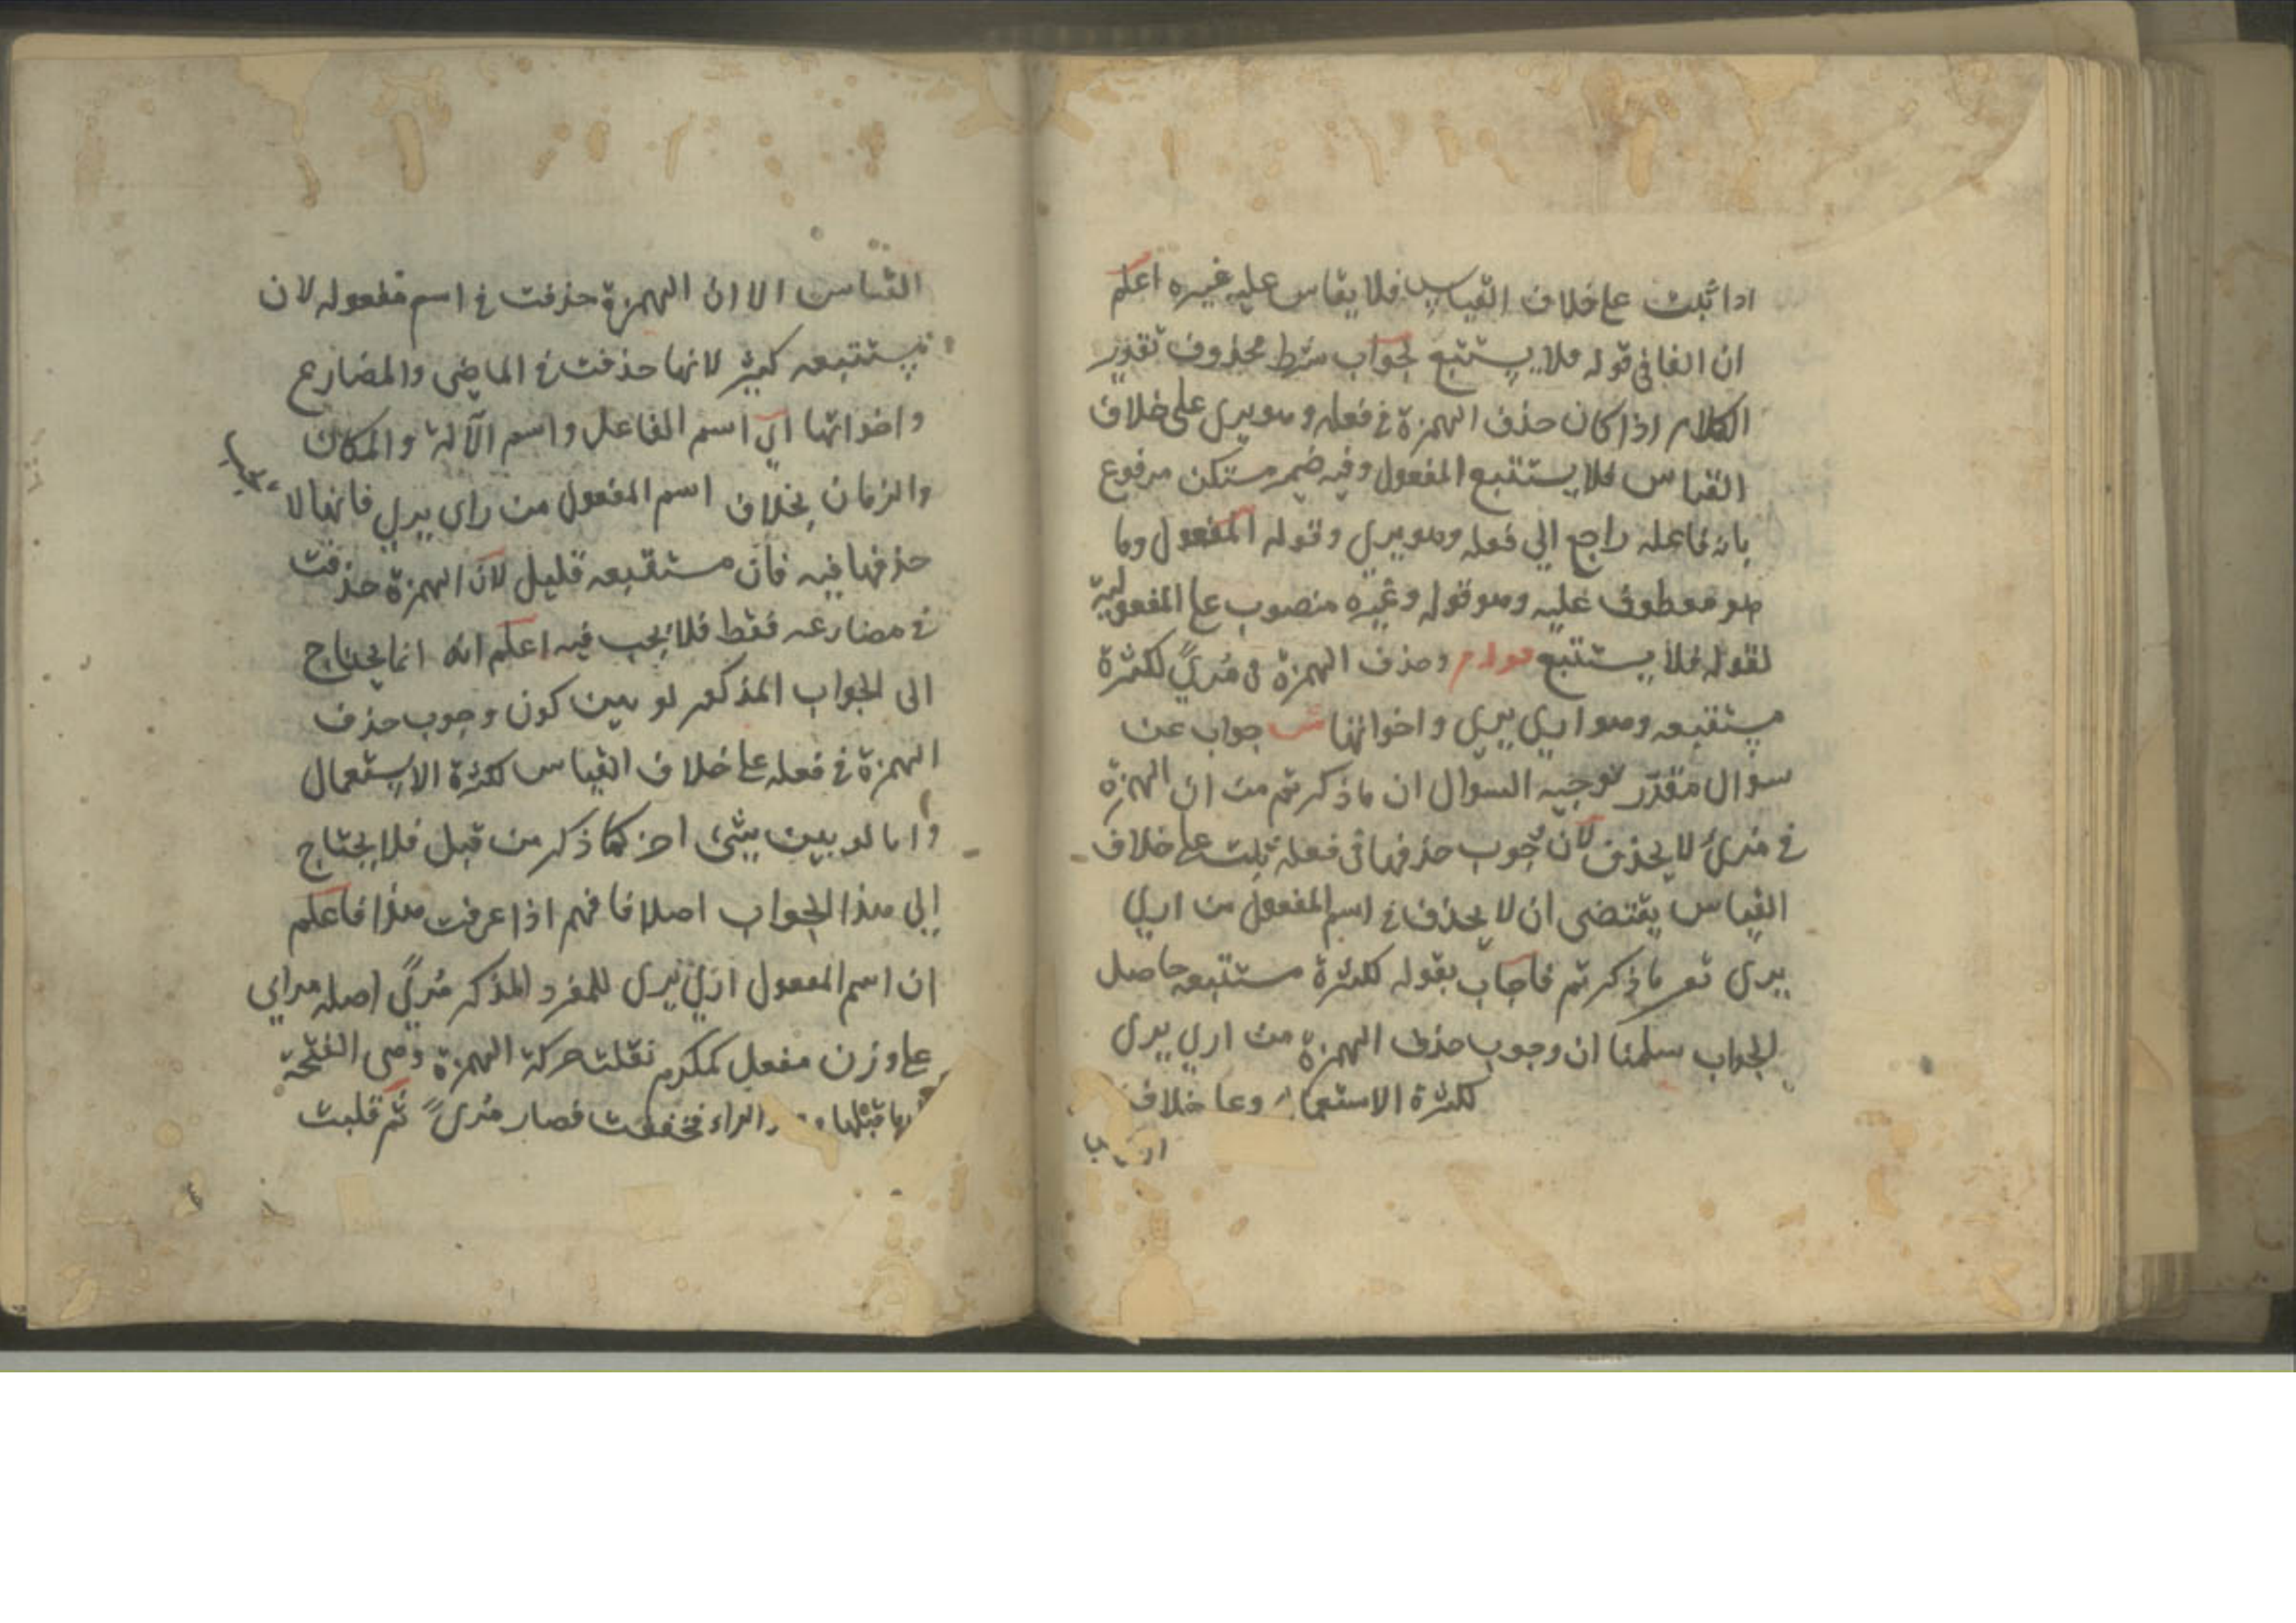 اذا ثبت على خلاف القياس فلا يقاس عليه غيره اعلم
ان الفا في قوله فلا يستتبع لجواب شرط محذوف تقدير
الكلام اذا كان حذف الهمزة في فعله وهو يرى على خلاف
القياس فلا يستتبع المفعول وفيه ضمير مستكن مرفوع
بانه فاعله راجع الي فعله وهو يرى وقوله المفعول وما
هو معطوف عليه وهو قوله وغيره منصوب على المفعولية
لقوله فلا يستتبع قوله م وحذف الهمزة في مُرًى لكثرة
مستتبعه وهو ارى يرى واخواتها ش جواب عن
سؤال مقدر توجيه السوال ان ما ذكرتم من ان الهمزة
في مرى لا يحذف لان وجوب حذفها في فعله ثبت على خلاف
القياس يقتضى ان لا يحذف في اسم المفعول من ارى
يرى مع ما ذكرتم فاجاب بقوله لكثرة مستتبعه حاصل
الجواب سلمنا ان وجوب حذف الهمزة من ارى يرى
لكثرة الاستعمال وعلى خلاف
القياس الا ان الهمزة حذفت في اسم مفعوله لان
مستتبعه كثير لانها حذفت في الماضى والمضارع
واخواتها اي اسم الفاعل واسم الآلة والمكان
والزمان بخلاف اسم المفعول من راى يرى فانها لا
حذفها فيه فان مستتبعه قليل لان الهمزة حذفت
في مضارعه فقط فلا يجب فيه اعلم انه انما يحتاج
الى الجواب المذكور لو بين كون وجوب حذف
الهمزة في فعله على خلاف القياس لكثرة الاستعمال
واما لو بين بشئ اخر كما ذكر من قبل فلا يحتاج
إلى هذا الجواب اصلا فافهم اذا عرفت هذا فاعلم
ان اسم المفعول ارى يرى للمفرد المذكر مُرًى اصله مراي
على وزن مفعل كمكرم نقلت حركة الهمزة وهى الفتحة
ما قبلها الراء فخففت فصار مُرىً ثم قلبت